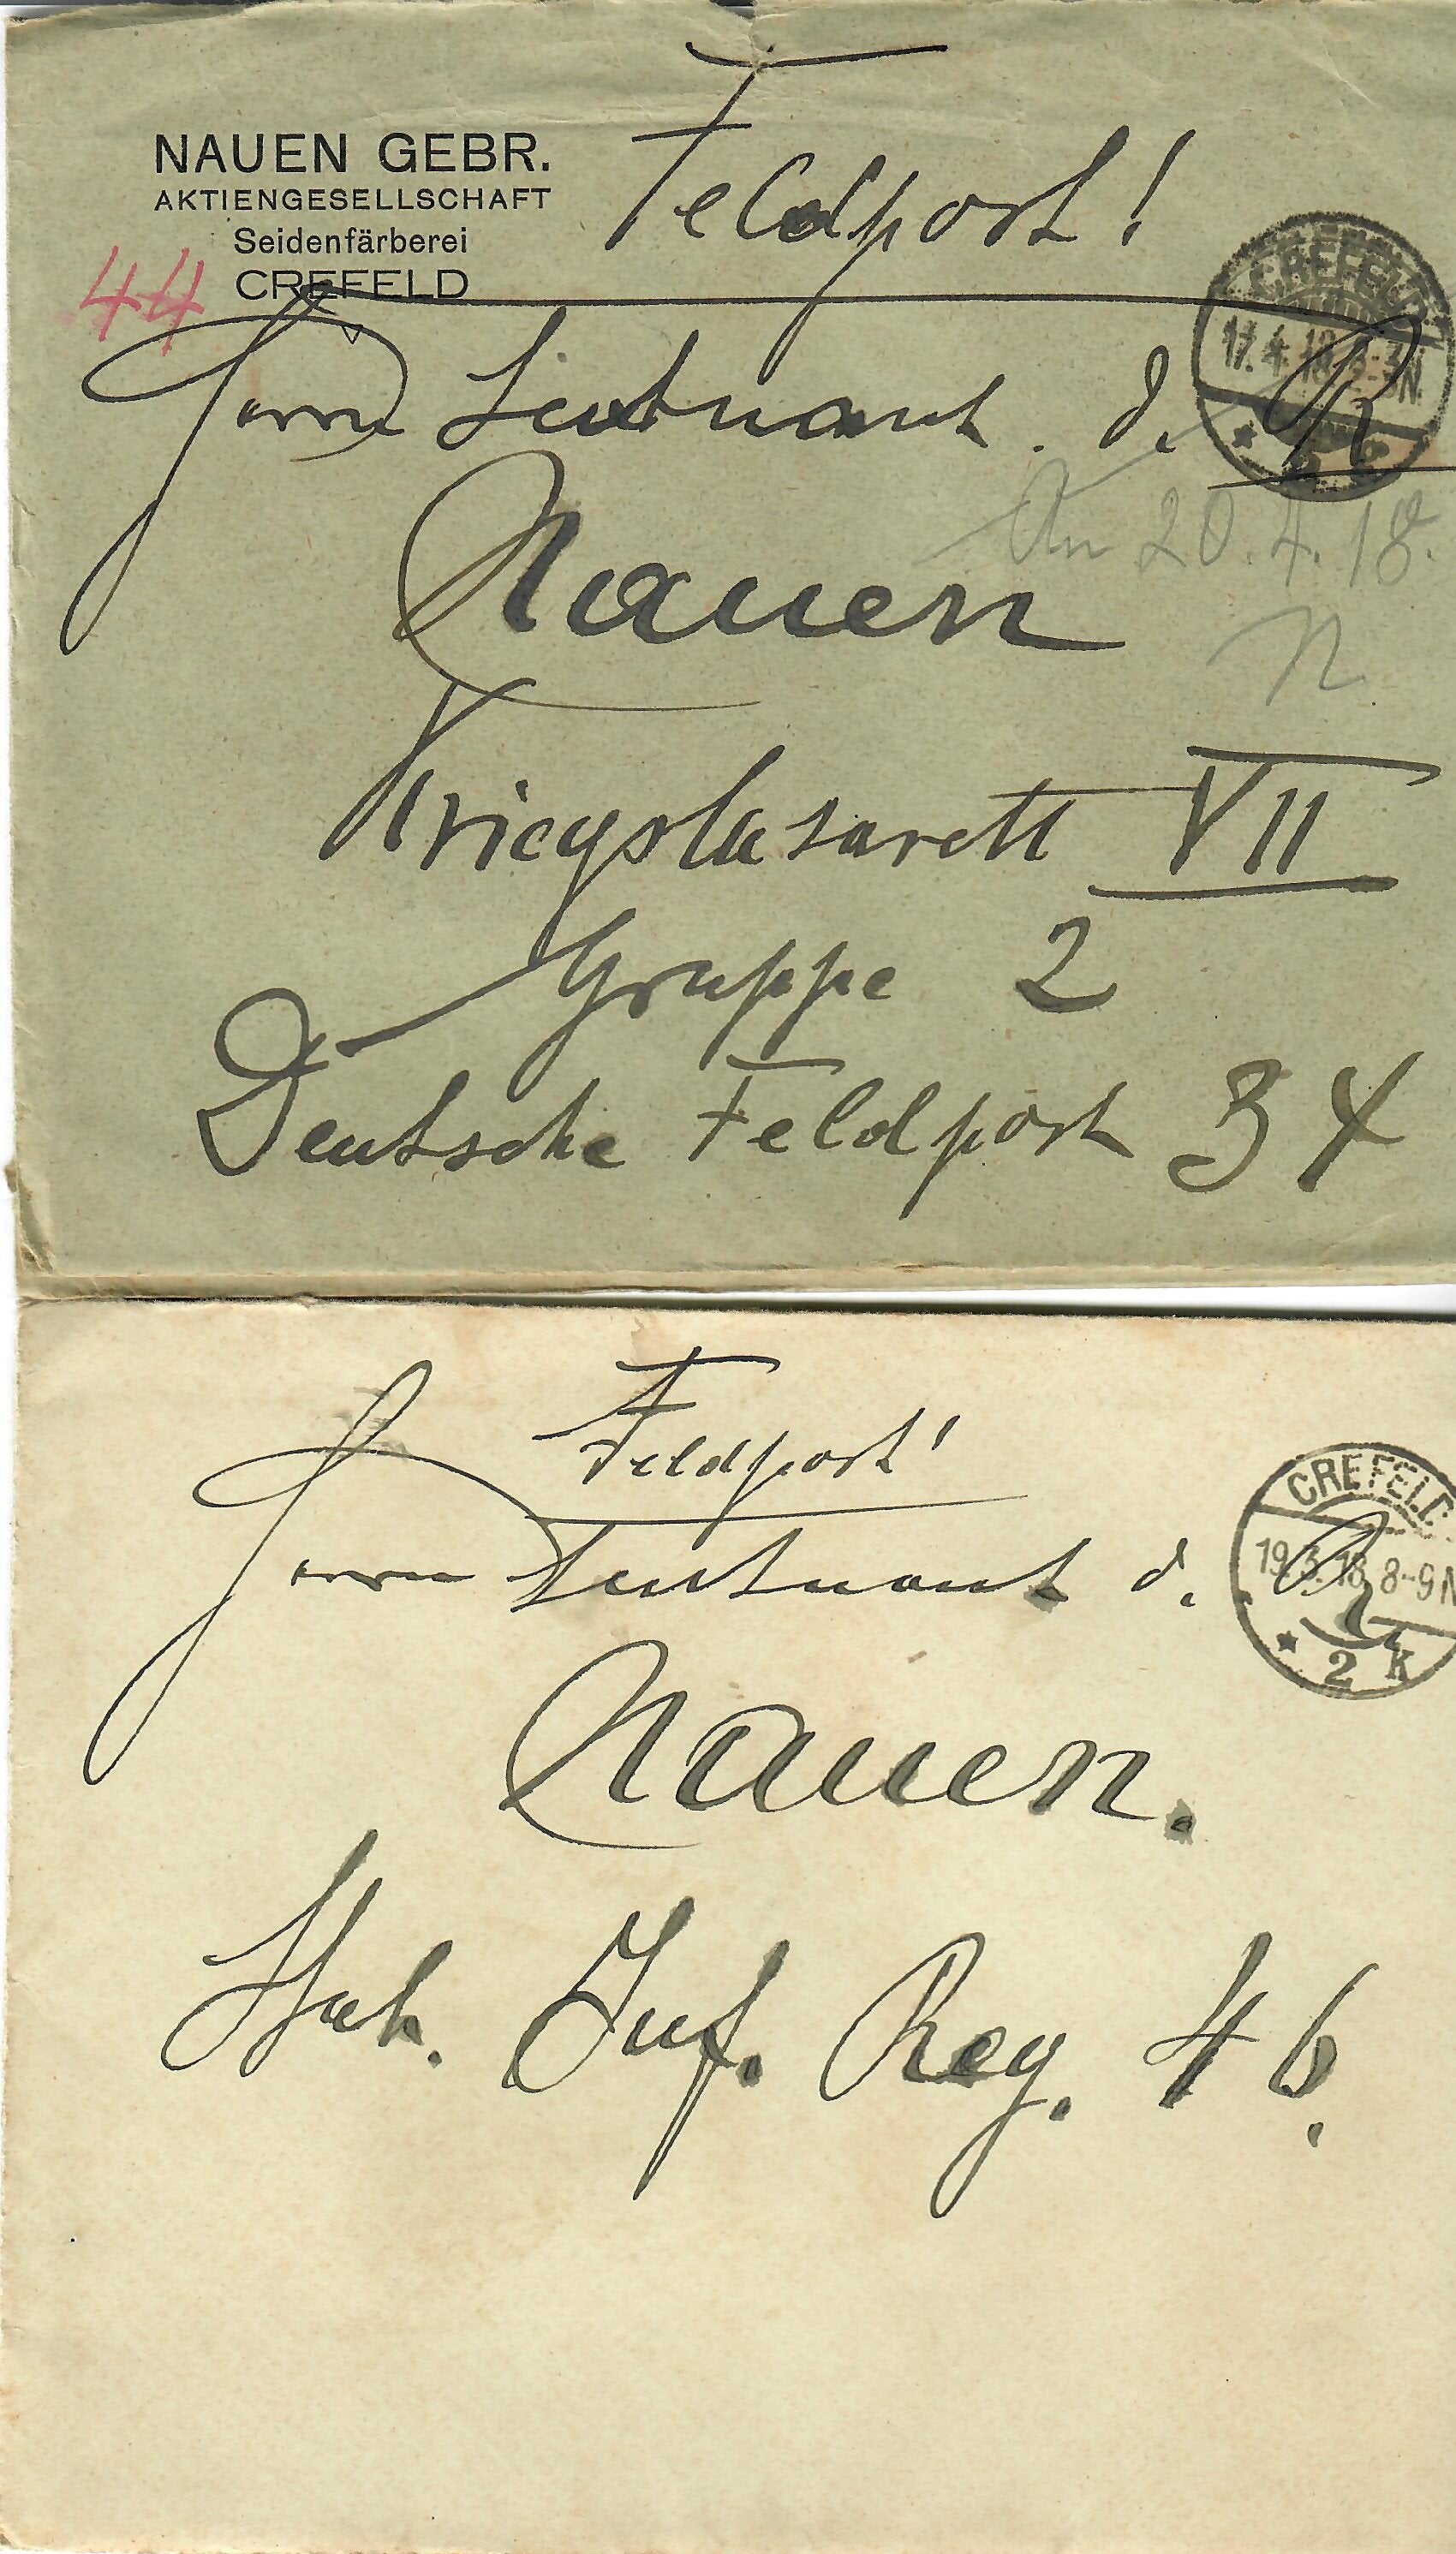 NAUEN GEBR.
AKTIENGESELLSCHAFT
Seidenfärberei
CREFELD
44
Feldpost!
CREFELD
17.4.18 2-3N
Herrn Leutnant d. R
An 20.4.18.
Nauen
N.
Kriegslazarett VII
Gruppe 2
Deutsche Feldpost 34
Feldpost!
CREFELD
19.3.18 8-9N
* 2 k
Herrn Leutnant d. R.
Nauen.
Inf. Reg. 46.